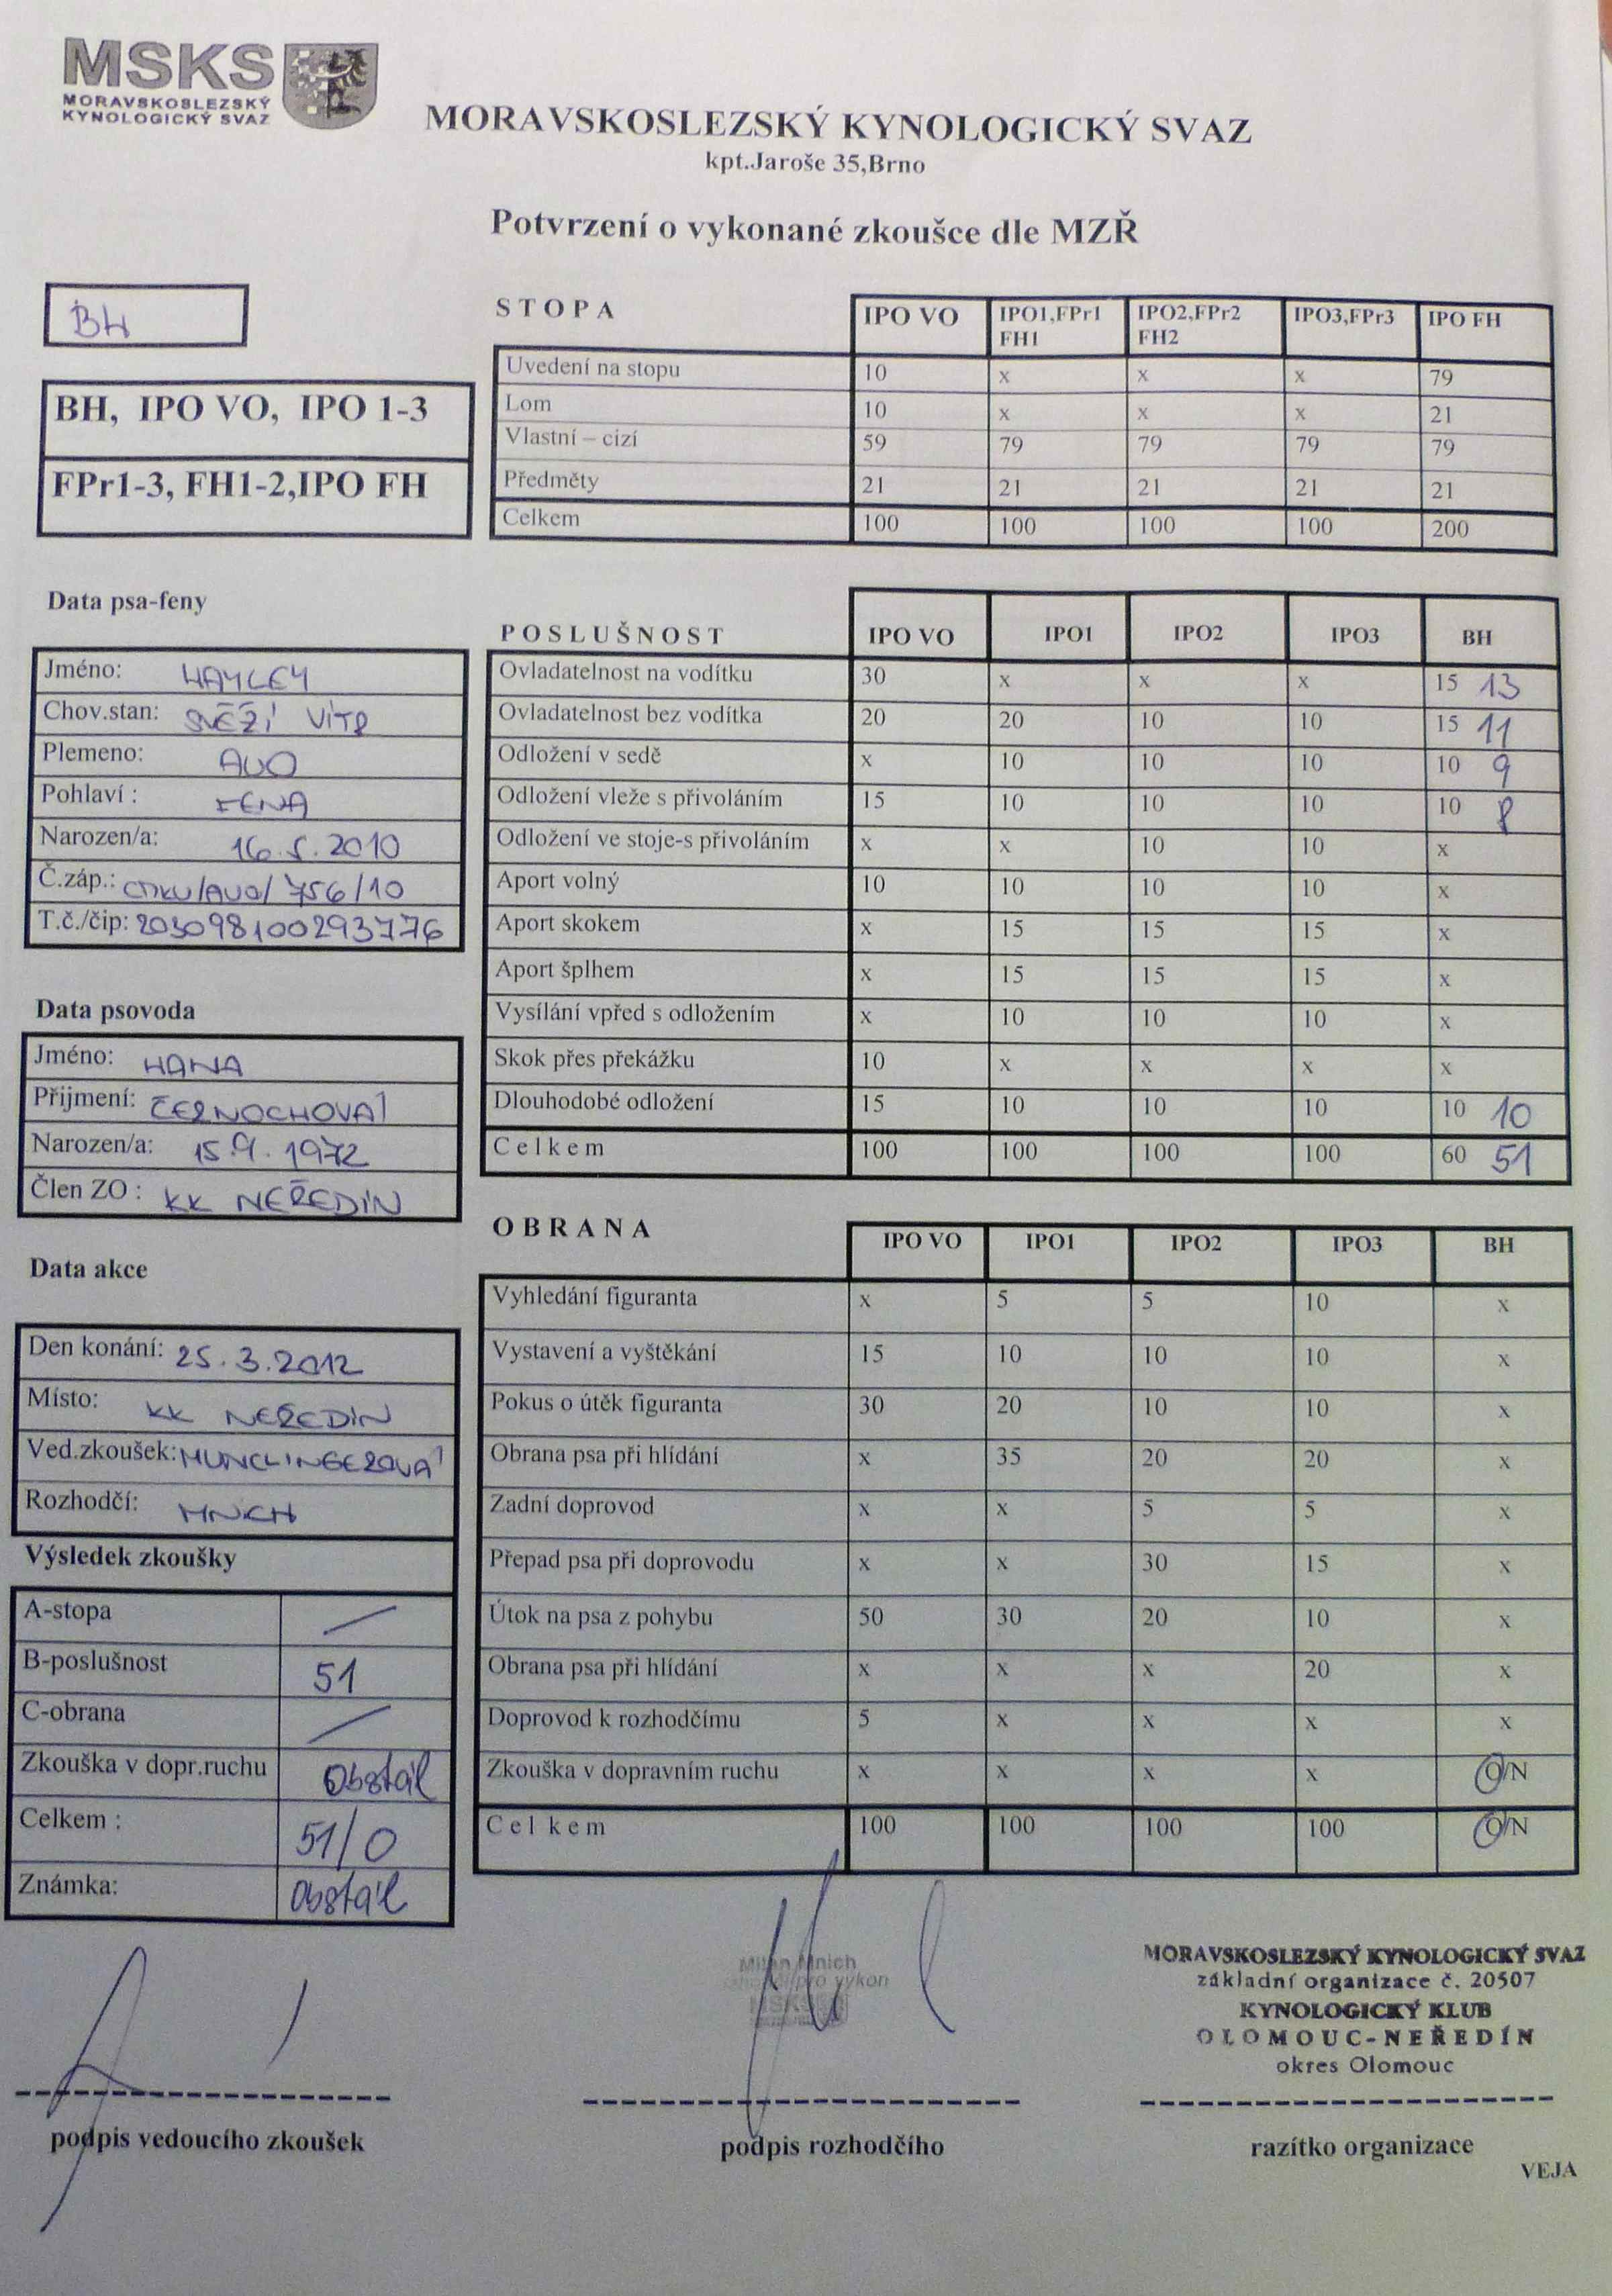 MSKS
MORAVSKOSLEZSKÝ
KYNOLOGICKÝ SVAZ
MORAVSKOSLEZSKÝ KYNOLOGICKÝ SVAZ
kpt.Jaroše 35,Brno
Potvrzení o vykonané zkoušce dle MZŘ
BH
BH, IPO VO, IPO 1-3
FPr1-3, FH1-2,IPO FH
STOPA IPO VO IPO1,FPr1 FH1 IPO2,FPr2 FH2 IPO3,FPr3 IPO FH
Uvedení na stopu 10 x x x 79
Lom 10 x x x 21
Vlastní – cizí 59 79 79 79 79
Předměty 21 21 21 21 21
Celkem 100 100 100 100 200
Data psa-feny
Jméno: HAYLEY
Chov.stan: SVĚŽÍ VÍTR
Plemeno: AUO
Pohlaví : FENA
Narozen/a: 16.5.2010
Č.záp.: CMKU/AUO/756/10
T.č./čip: 203098100293776
Data psovoda
Jméno: HANA
Přijmení: ČERNOCHOVÁ
Narozen/a: 15.9.1972
Člen ZO : KK NEŘEDÍN
Data akce
Den konání: 25.3.2012
Místo: KK NEŘEDÍN
Ved.zkoušek: MUNCLINGEROVÁ
Rozhodčí: MNICH
Výsledek zkoušky
A-stopa —
B-poslušnost 51
C-obrana —
Zkouška v dopr.ruchu Obstál
Celkem : 51/O
Známka: Obstál
POSLUŠNOST IPO VO IPO1 IPO2 IPO3 BH
Ovladatelnost na vodítku 30 x x x 15 13
Ovladatelnost bez vodítka 20 20 10 10 15 11
Odložení v sedě x 10 10 10 10 9
Odložení vleže s přivoláním 15 10 10 10 10 8
Odložení ve stoje-s přivoláním x x 10 10 x
Aport volný 10 10 10 10 x
Aport skokem x 15 15 15 x
Aport šplhem x 15 15 15 x
Vysílání vpřed s odložením x 10 10 10 x
Skok přes překážku 10 x x x x
Dlouhodobé odložení 15 10 10 10 10 10
Celkem 100 100 100 100 60 51
OBRANA IPO VO IPO1 IPO2 IPO3 BH
Vyhledání figuranta x 5 5 10 x
Vystavení a vyštěkání 15 10 10 10 x
Pokus o útěk figuranta 30 20 10 10 x
Obrana psa při hlídání x 35 20 20 x
Zadní doprovod x x 5 5 x
Přepad psa při doprovodu x x 30 15 x
Útok na psa z pohybu 50 30 20 10 x
Obrana psa při hlídání x x x 20 x
Doprovod k rozhodčímu 5 x x x x
Zkouška v dopravním ruchu x x x x O/N
Celkem 100 100 100 100 O/N
Milan Mnich
pro výkon
MSKS
MORAVSKOSLEZSKÝ KYNOLOGICKÝ SVAZ
základní organizace č. 20507
KYNOLOGICKÝ KLUB
OLOMOUC-NEŘEDÍN
okres Olomouc
podpis vedoucího zkoušek
podpis rozhodčího
razítko organizace
VEJA